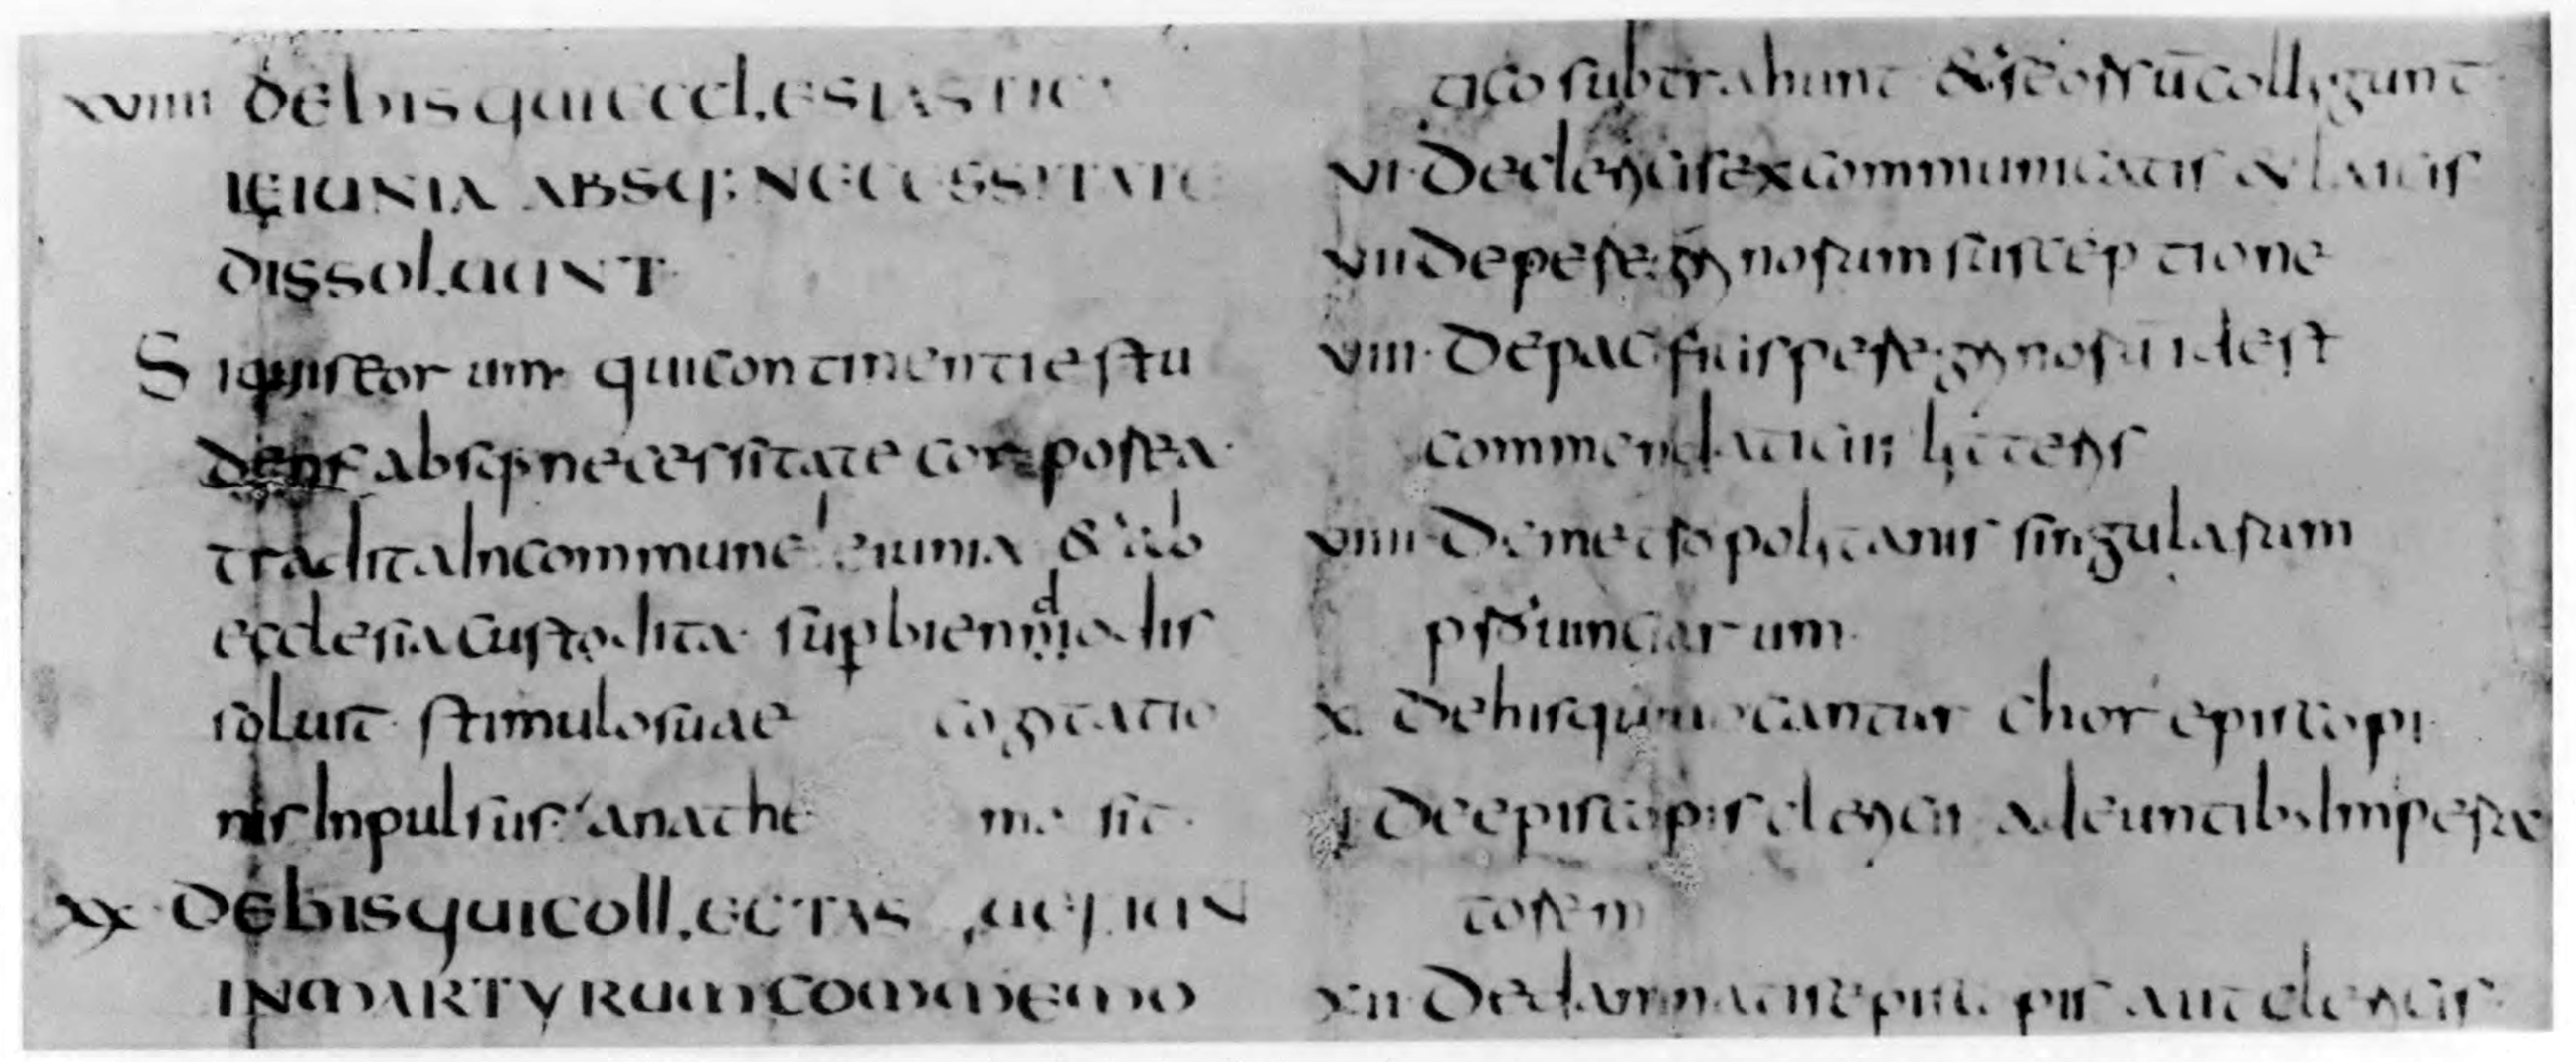 xviiii de his qui ecclesiastic
ieiunia absq: necessitate
dissoluunt
Si quis eor um qui continentie stu
dent absq necessitate corporea
tradita In commune ieiunia & ab
ecclesia custodita sup biennio dis
solunt stimulo suae cogitatio
nis Inpulsus anathe ma sit
xx de his qui collectas que fiun
in martyrum commemo
tico subtrahunt & seorsū colligunt
vi de clericis excommunicatis & laicis
vii de peregrinorum susceptione
viii de pacificis peregrinorū id est
commendaticiis litteris
viiii de metropolitanis singularum
prouinciarum
x de his qui uocantur chorepiscopi
xi de episcopis clericis adeuntib. Impera
torem
xii de damnatis epis pis aut clericis